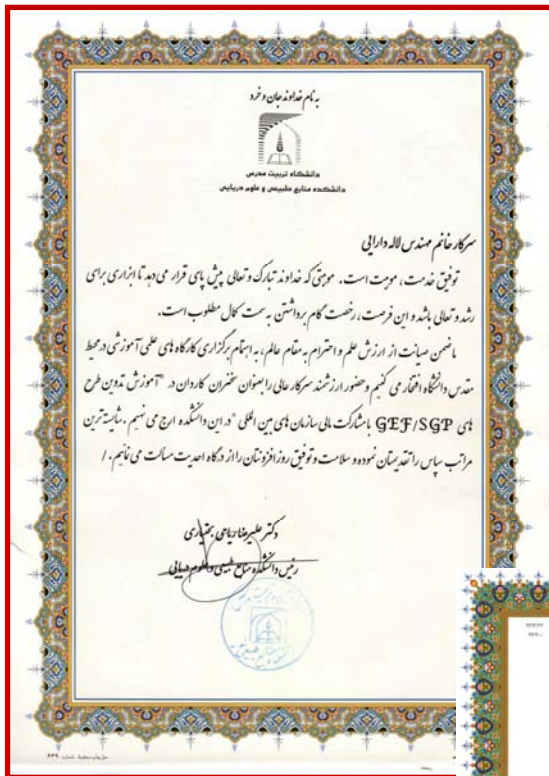 به نام خداوند جان و خرد
دانشگاه تربیت مدرس
دانشکده منابع طبیعی و علوم دریایی
سرکار خانم مهندس لاله دارایی
توفیق خدمت، موهبت است. موهبتی که خداوند تبارک و تعالی پیش پای قرار می دهد تا ابزاری برای
رشد و تعالی باشد و این فرصت، رخصت گام برداشتن به سمت کمال مطلوب است.
با ضمن صیانت از ارزش علم و احترام به مقام عالم، به اهتمام برگزاری کارگاه های علمی آموزشی در محیط
مقدس دانشگاه افتخار می کنیم و حضور ارزشمند سرکار عالی را بعنوان سخنران کاردان در "آموزش تدوین طرح
های GEF/SGP با مشارکت مالی سازمان های بین المللی" در این دانشکده ارج می نهیم. شایسته ترین
مراتب سپاس را تقدیمتان نموده و سلامت و توفیق روزافزونتان را از درگاه احدیت مسألت می نمائیم. /
دکتر علیرضا ریاحی بختیاری
رئیس دانشکده منابع طبیعی و علوم دریایی